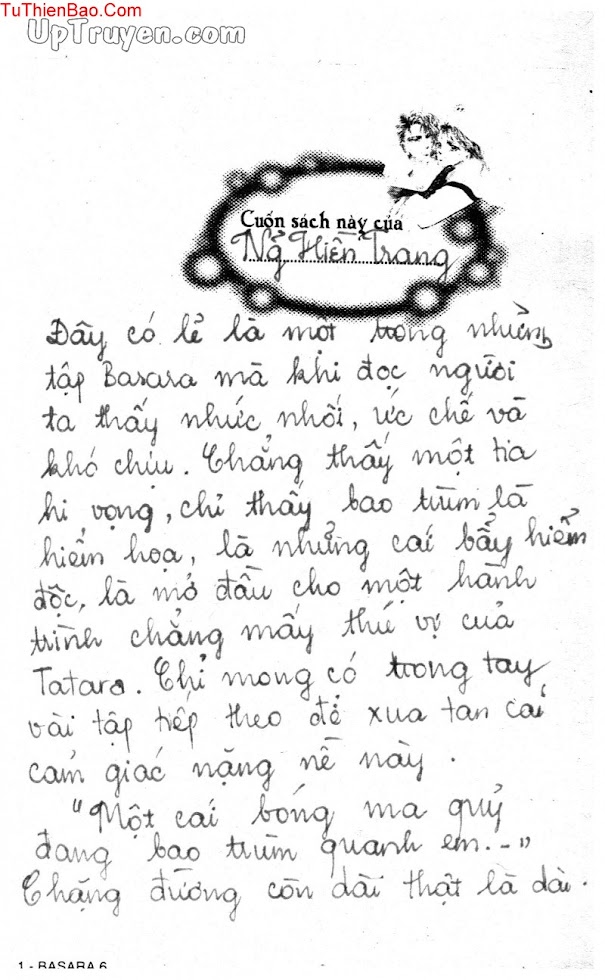 TuThienBao.Com
UpTruyen.com
Cuốn sách này của
Ng Hiền Trang
Đây có lẽ là một trong những
tập Basara mà khi đọc người
ta thấy nhức nhối, ức chế và
khó chịu. Chẳng thấy một tia
hi vọng, chỉ thấy bao trùm là
hiểm họa, là những cái bẫy hiểm
độc, là mở đầu cho một hành
trình chẳng mấy thú vị của
Tatara. Chỉ mong có trong tay
vài tập tiếp theo để xua tan cái
cảm giác nặng nề này.
"Một cái bóng ma quỷ
đang bao trùm quanh em..."
Chặng đường còn dài thật là dài.
1 - BASARA 6